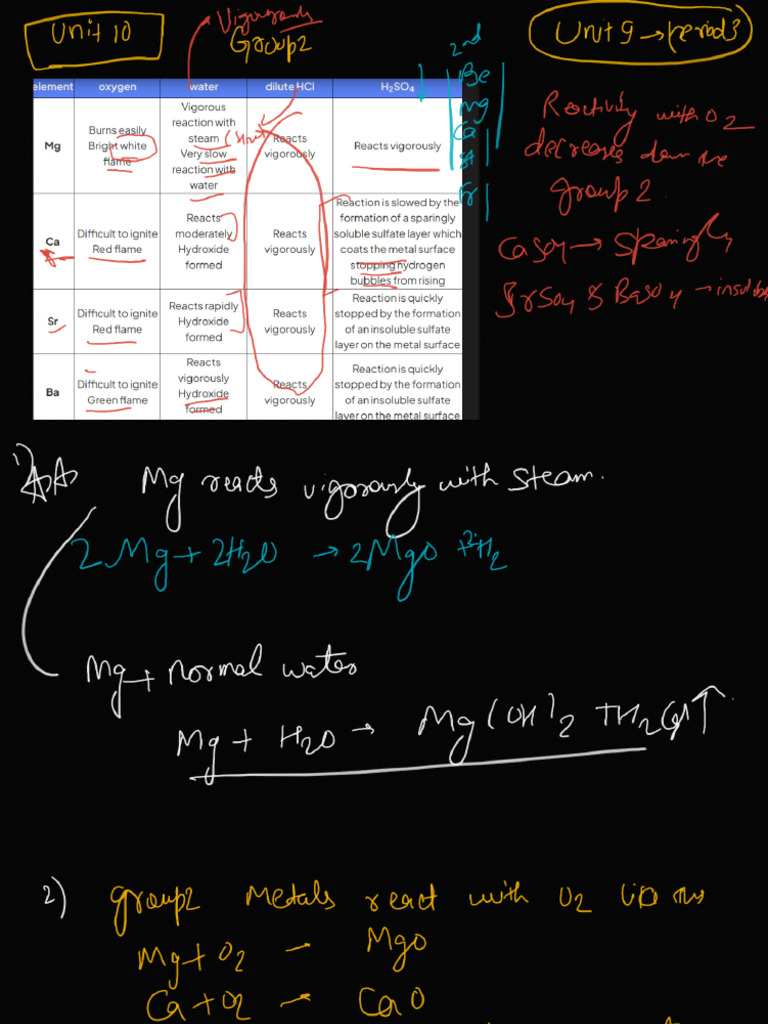 Unit 10
Vigorously
Group2
Unit 9 → period 3
2nd
Be
Mg
Ca
Fr
element oxygen water dilute HCl H₂SO₄
Mg
Burns easily
Bright white
flame
Vigorous
reaction with
steam
Very slow
reaction with
water
Reacts
vigorously
Reacts vigorously
Ca
Difficult to ignite
Red flame
Reacts
moderately
Hydroxide
formed
Reacts
vigorously
Reaction is slowed by the
formation of a sparingly
soluble sulfate layer which
coats the metal surface
stopping hydrogen
bubbles from rising
Sr
Difficult to ignite
Red flame
Reacts rapidly
Hydroxide
formed
Reacts
vigorously
Reaction is quickly
stopped by the formation
of an insoluble sulfate
layer on the metal surface
Ba
Difficult to ignite
Green flame
Reacts
vigorously
Hydroxide
formed
Reacts
vigorously
Reaction is quickly
stopped by the formation
of an insoluble sulfate
layer on the metal surface
Reactivity with O2
decreases down the
group 2.
CaSO4 → Sparingly
SrSO4 & BaSO4 →
1)
Mg reacts vigorously with steam.
2Mg + 2H2O → 2MgO + 2H2
Mg + normal water
Mg + H2O → Mg(OH)2 + H2(g)↑
2) group2 Metals react with O2
Mg + O2 – MgO
Ca + O2 – CaO